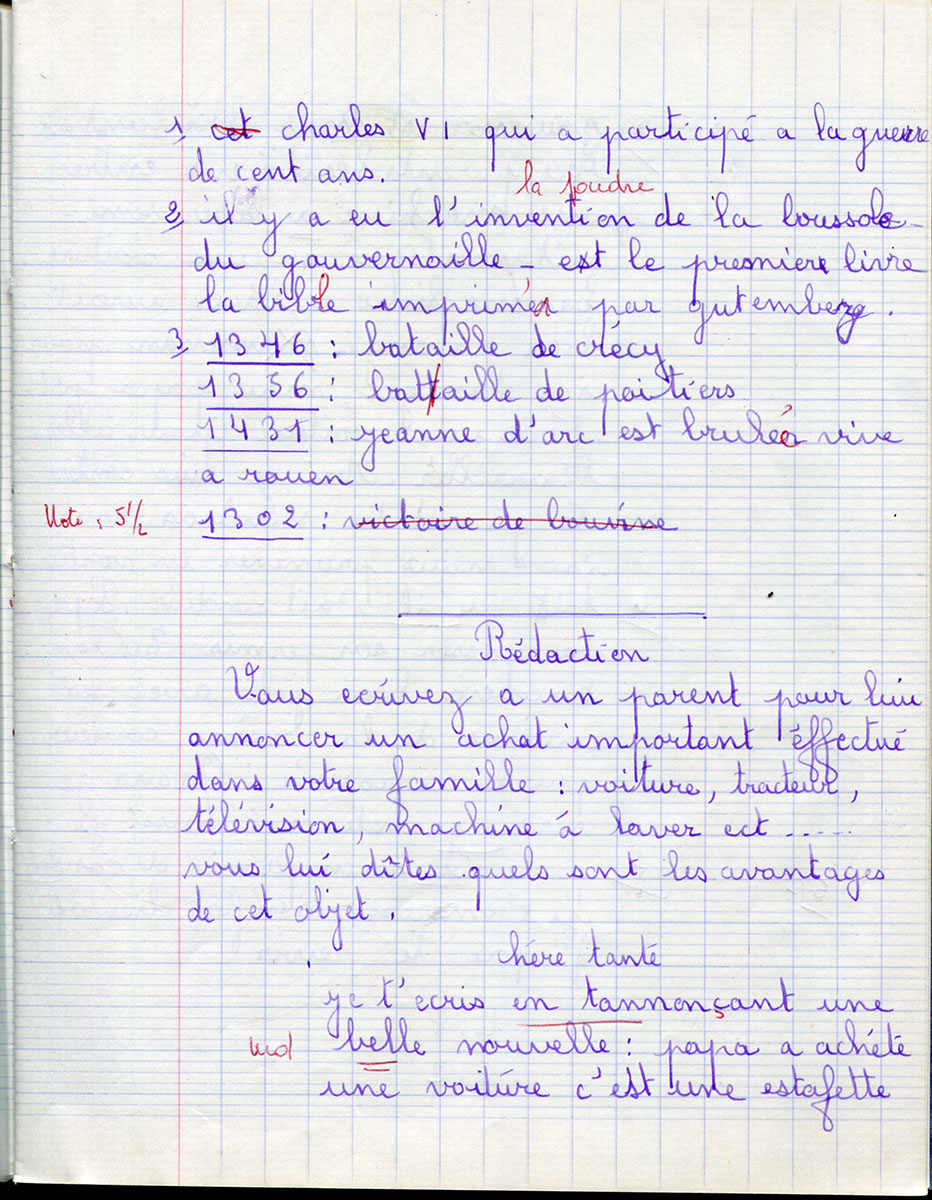 1 cet charles VI qui a participé a la guerre
de cent ans.
la poudre
2 il y a eu l'invention de la boussole -
du gouvernaille - est le premiere livre
la bible imprimée par gutemberg.
3 1346 : bataille de crécy
1356 : battaille de poitiers
1431 : jeanne d'arc est brulée vive
a rouen
Note : 5 1/2 1302 : victoire de bouvine
Rédaction
Vous ecrivez a un parent pour luii
annoncer un achat important éffectué
dans votre famille : voiture, tracteur,
télévision, machine á laver ect .....
vous lui dîtes quels sont les avantages
de cet objet.
hére tante
je t'ecris en tannonçant une
md belle nouvelle : papa a achéte
une voiture c'est une estafette